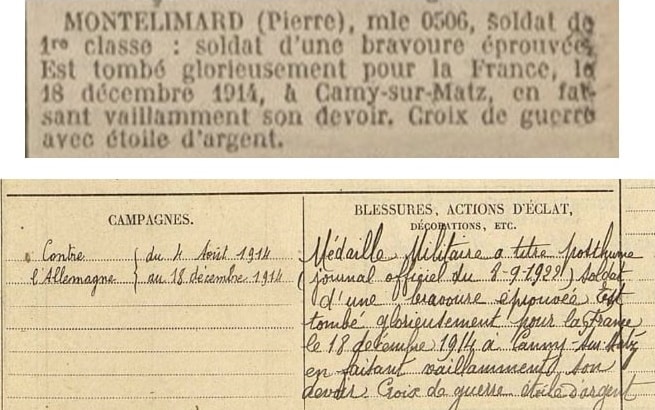 MONTELIMARD (Pierre), mle 0506, soldat de
1re classe : soldat d'une bravoure éprouvée.
Est tombé glorieusement pour la France, le
18 décembre 1914, à Camy-sur-Matz, en fai-
sant vaillamment son devoir. Croix de guerre
avec étoile d'argent.
CAMPAGNES.
Contre { du 4 Août 1914
l'Allemagne } au 18 décembre 1914
BLESSURES, ACTIONS D'ÉCLAT,
DÉCORATIONS, ETC.
Médaille Militaire a titre posthume
(journal officiel du 8-9-1922) Soldat
d'une bravoure éprouvée Est
tombé glorieusement pour la France
le 18 décembre 1914 à Canny-sur-Matz
en faisant vaillamment son
devoir Croix de guerre étoile d'argent